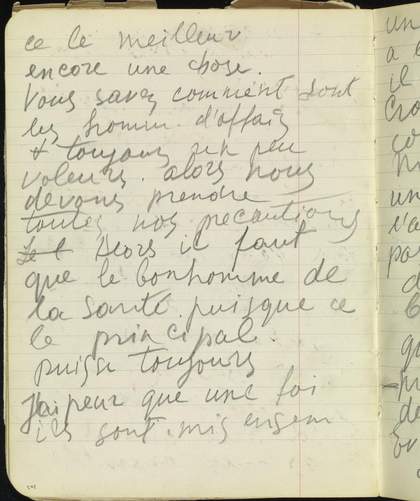 ce le meilleur
encore une chose.
Vous savez comment sont
les homm d'affais
+ toujours un peu
voleurs. alors nous
devons prendre
toutes nos precautions
Alors il faut
que le bonhomme de
la santé. puisque ce
le principal.
puisse toujours
J'ai peur que une foi
ils sont mis ensem
un
a
il
Cro
un
l'a
pas
d
qu
de